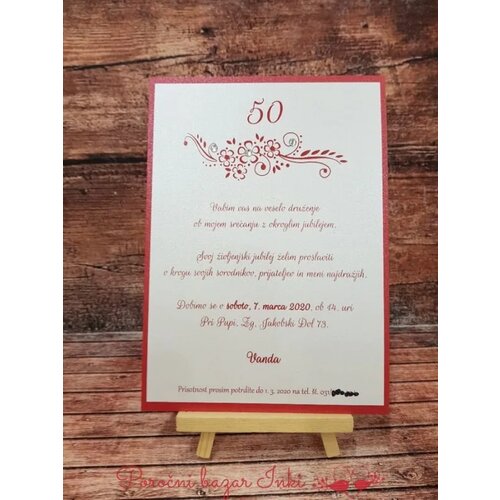 50
Vabim vas na veselo druženje
ob mojem srečanju z okroglim jubilejem.
Svoj življenjski jubilej želim proslaviti
v krogu svojih sorodnikov, prijateljev in meni najdražjih.
Dobimo se v soboto, 7. marca 2020, ob 14. uri
Pri Pupi, Zg. Jakobski Dol 73.
Vanda
Prisotnost prosim potrdite do 1. 3. 2020 na tel. št. 031/
Poročni bazar Inki